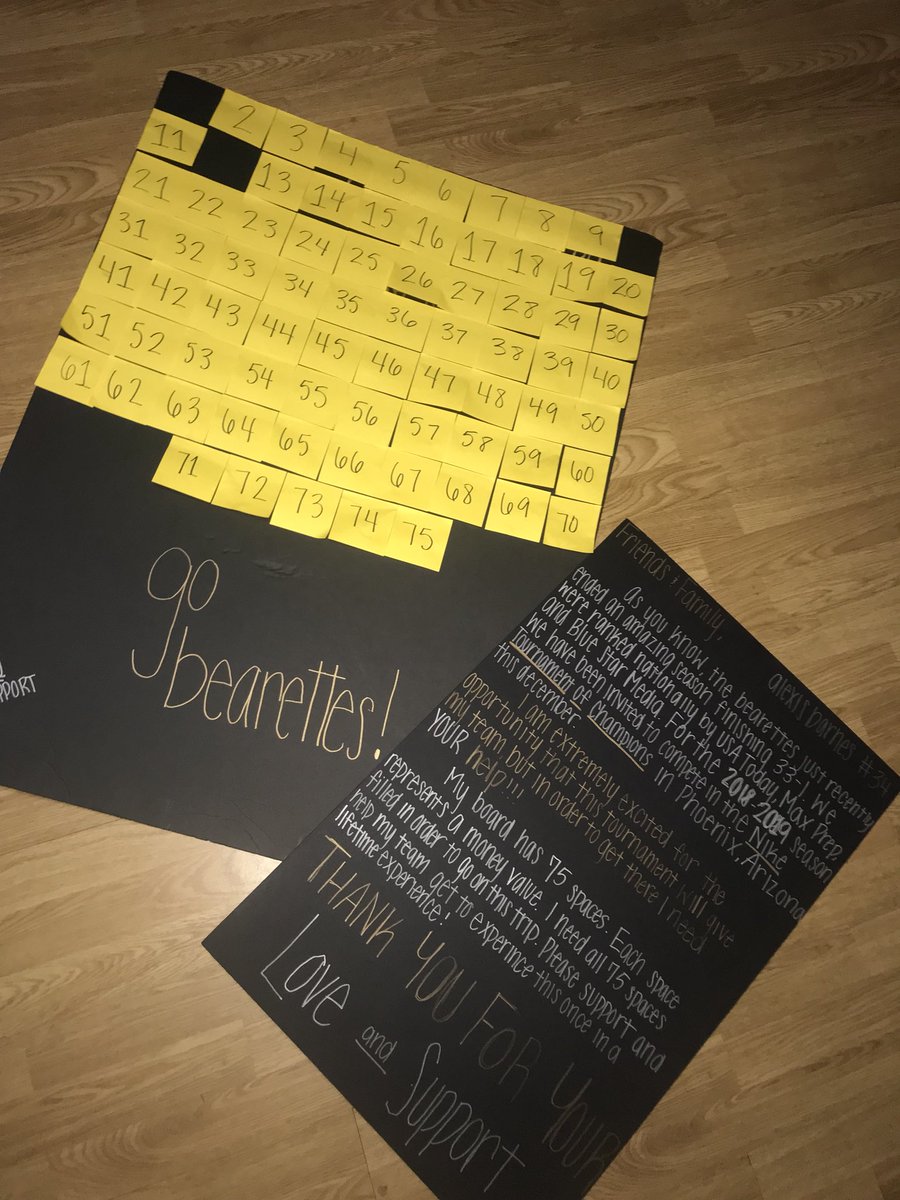 2 3 4 5 6 7 8 9
11 13 14 15 16 17 18 19 20
21 22 23 24 25 26 27 28 29 30
31 32 33 34 35 36 37 38 39 40
41 42 43 44 45 46 47 48 49 50
51 52 53 54 55 56 57 58 59 60
61 62 63 64 65 66 67 68 69 70
71 72 73 74 75
go
bearettes!
alexis Barnes #34
Friends & Family,
as you know, the bearettes just recently
ended an amazing season finishing 33-1. We
were ranked nationally by USA Today, Max Prep
and Blue Star Media. For the 2018-2019 season
we have been invited to compete in the Nike
Tournament of Champions in Phoenix, Arizona
this december.
I am extremely excited for the
opportunity that this tournament will give
my team but in order to get there I need
YOUR help!!!
My board has 75 spaces. Each space
represents a money value. I need all 75 spaces
filled in order to go on this trip. Please support and
help my team get to experince this once in a
lifetime experience!
THANK YOU FOR YOUR
Love and Support